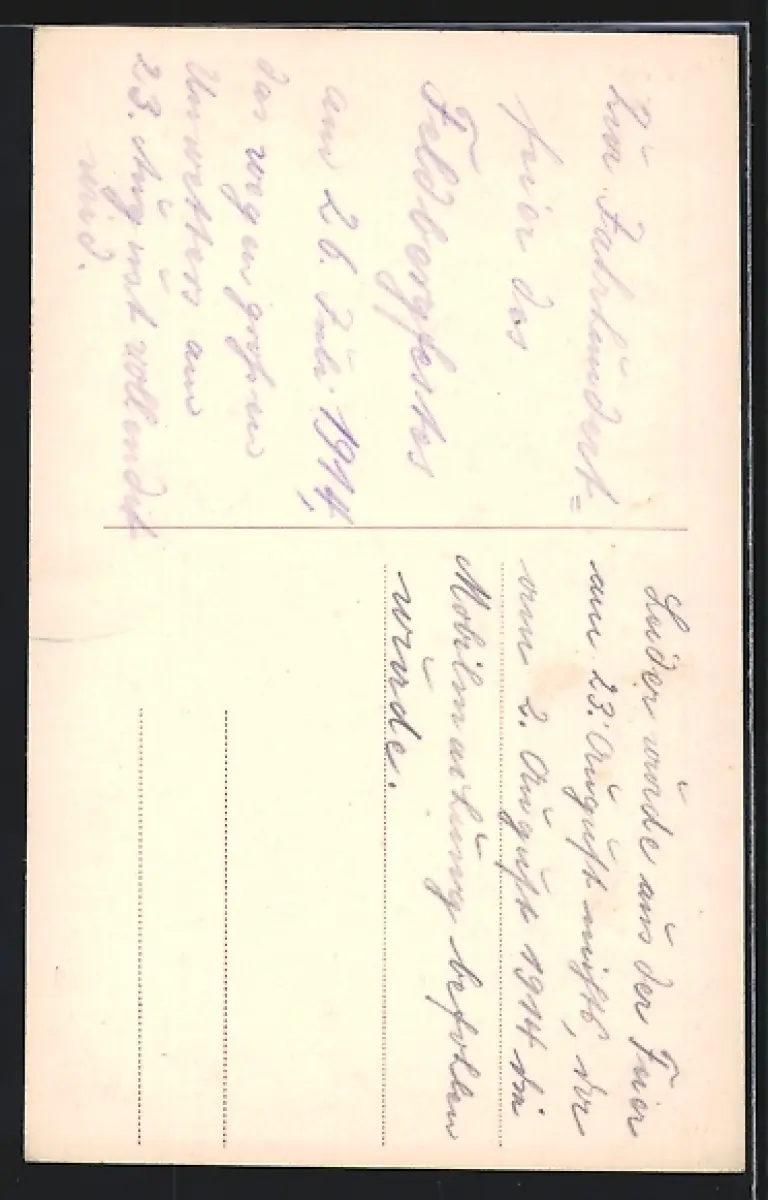 Zur Jahrhundert=
feier des
Feldbergfestes
am 26. Juli 1914,
das wegen großen
Unwetters am
23. August vollendet
wird.
Leider wurde aus der Feier
am 23. August nichts, da
vom 2. August 1914 die
Mobilmachung befohlen
wurde.